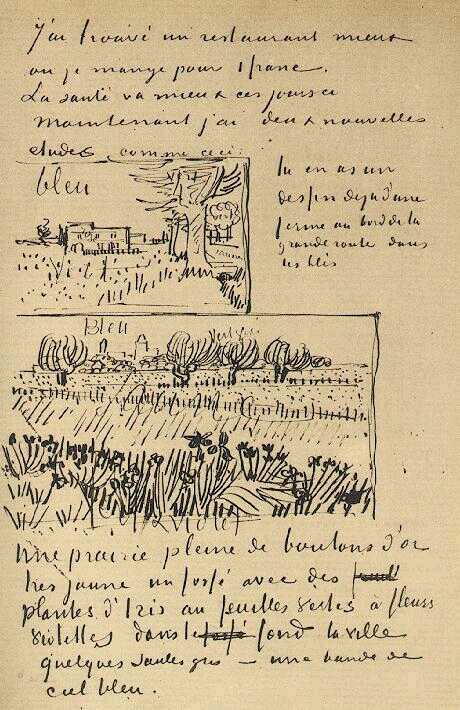 J'ai trouvé un restaurant mieux
ou je mange pour 1 franc.
La santé va mieux ces jours ci
Maintenant j'ai deux nouvelles
etudes comme ceci:
bleu
tu en as un
dessin deja d'une
ferme au bord de la
grande route dans
les blés
Violet
Bleu
Vert gris
Vert & Violet
Une prairie pleine de boutons d'or
tres jaune un fossé avec des
plantes d'Iris au feuilles vertes à fleurs
violettes dans le fond la ville
quelques saules gris — une bande de
ciel bleu.